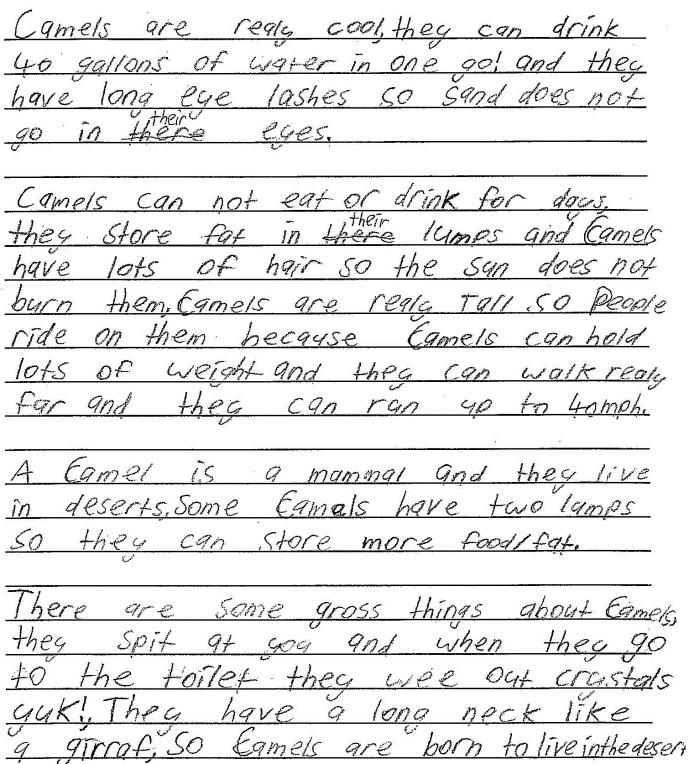 Camels are realy cool, they can drink
40 gallons of water in one go! and they
have long eye lashes so sand does not
go in there their eyes.
Camels can not eat or drink for days,
they store fat in there their lumps and Camels
have lots of hair so the sun does not
burn them. Camels are realy Tall so People
ride on them because Camels can hold
lots of weight and they can walk realy
far and they can run up to 40mph.
A Camel is a mammal and they live
in deserts. Some Camals have two lumps
so they can store more food/fat.
There are some gross things about Camels,
they spit at you and when they go
to the toilet they wee out crystals
yuk!, They have a long neck like
a girraf, So Camels are born to live in the desert